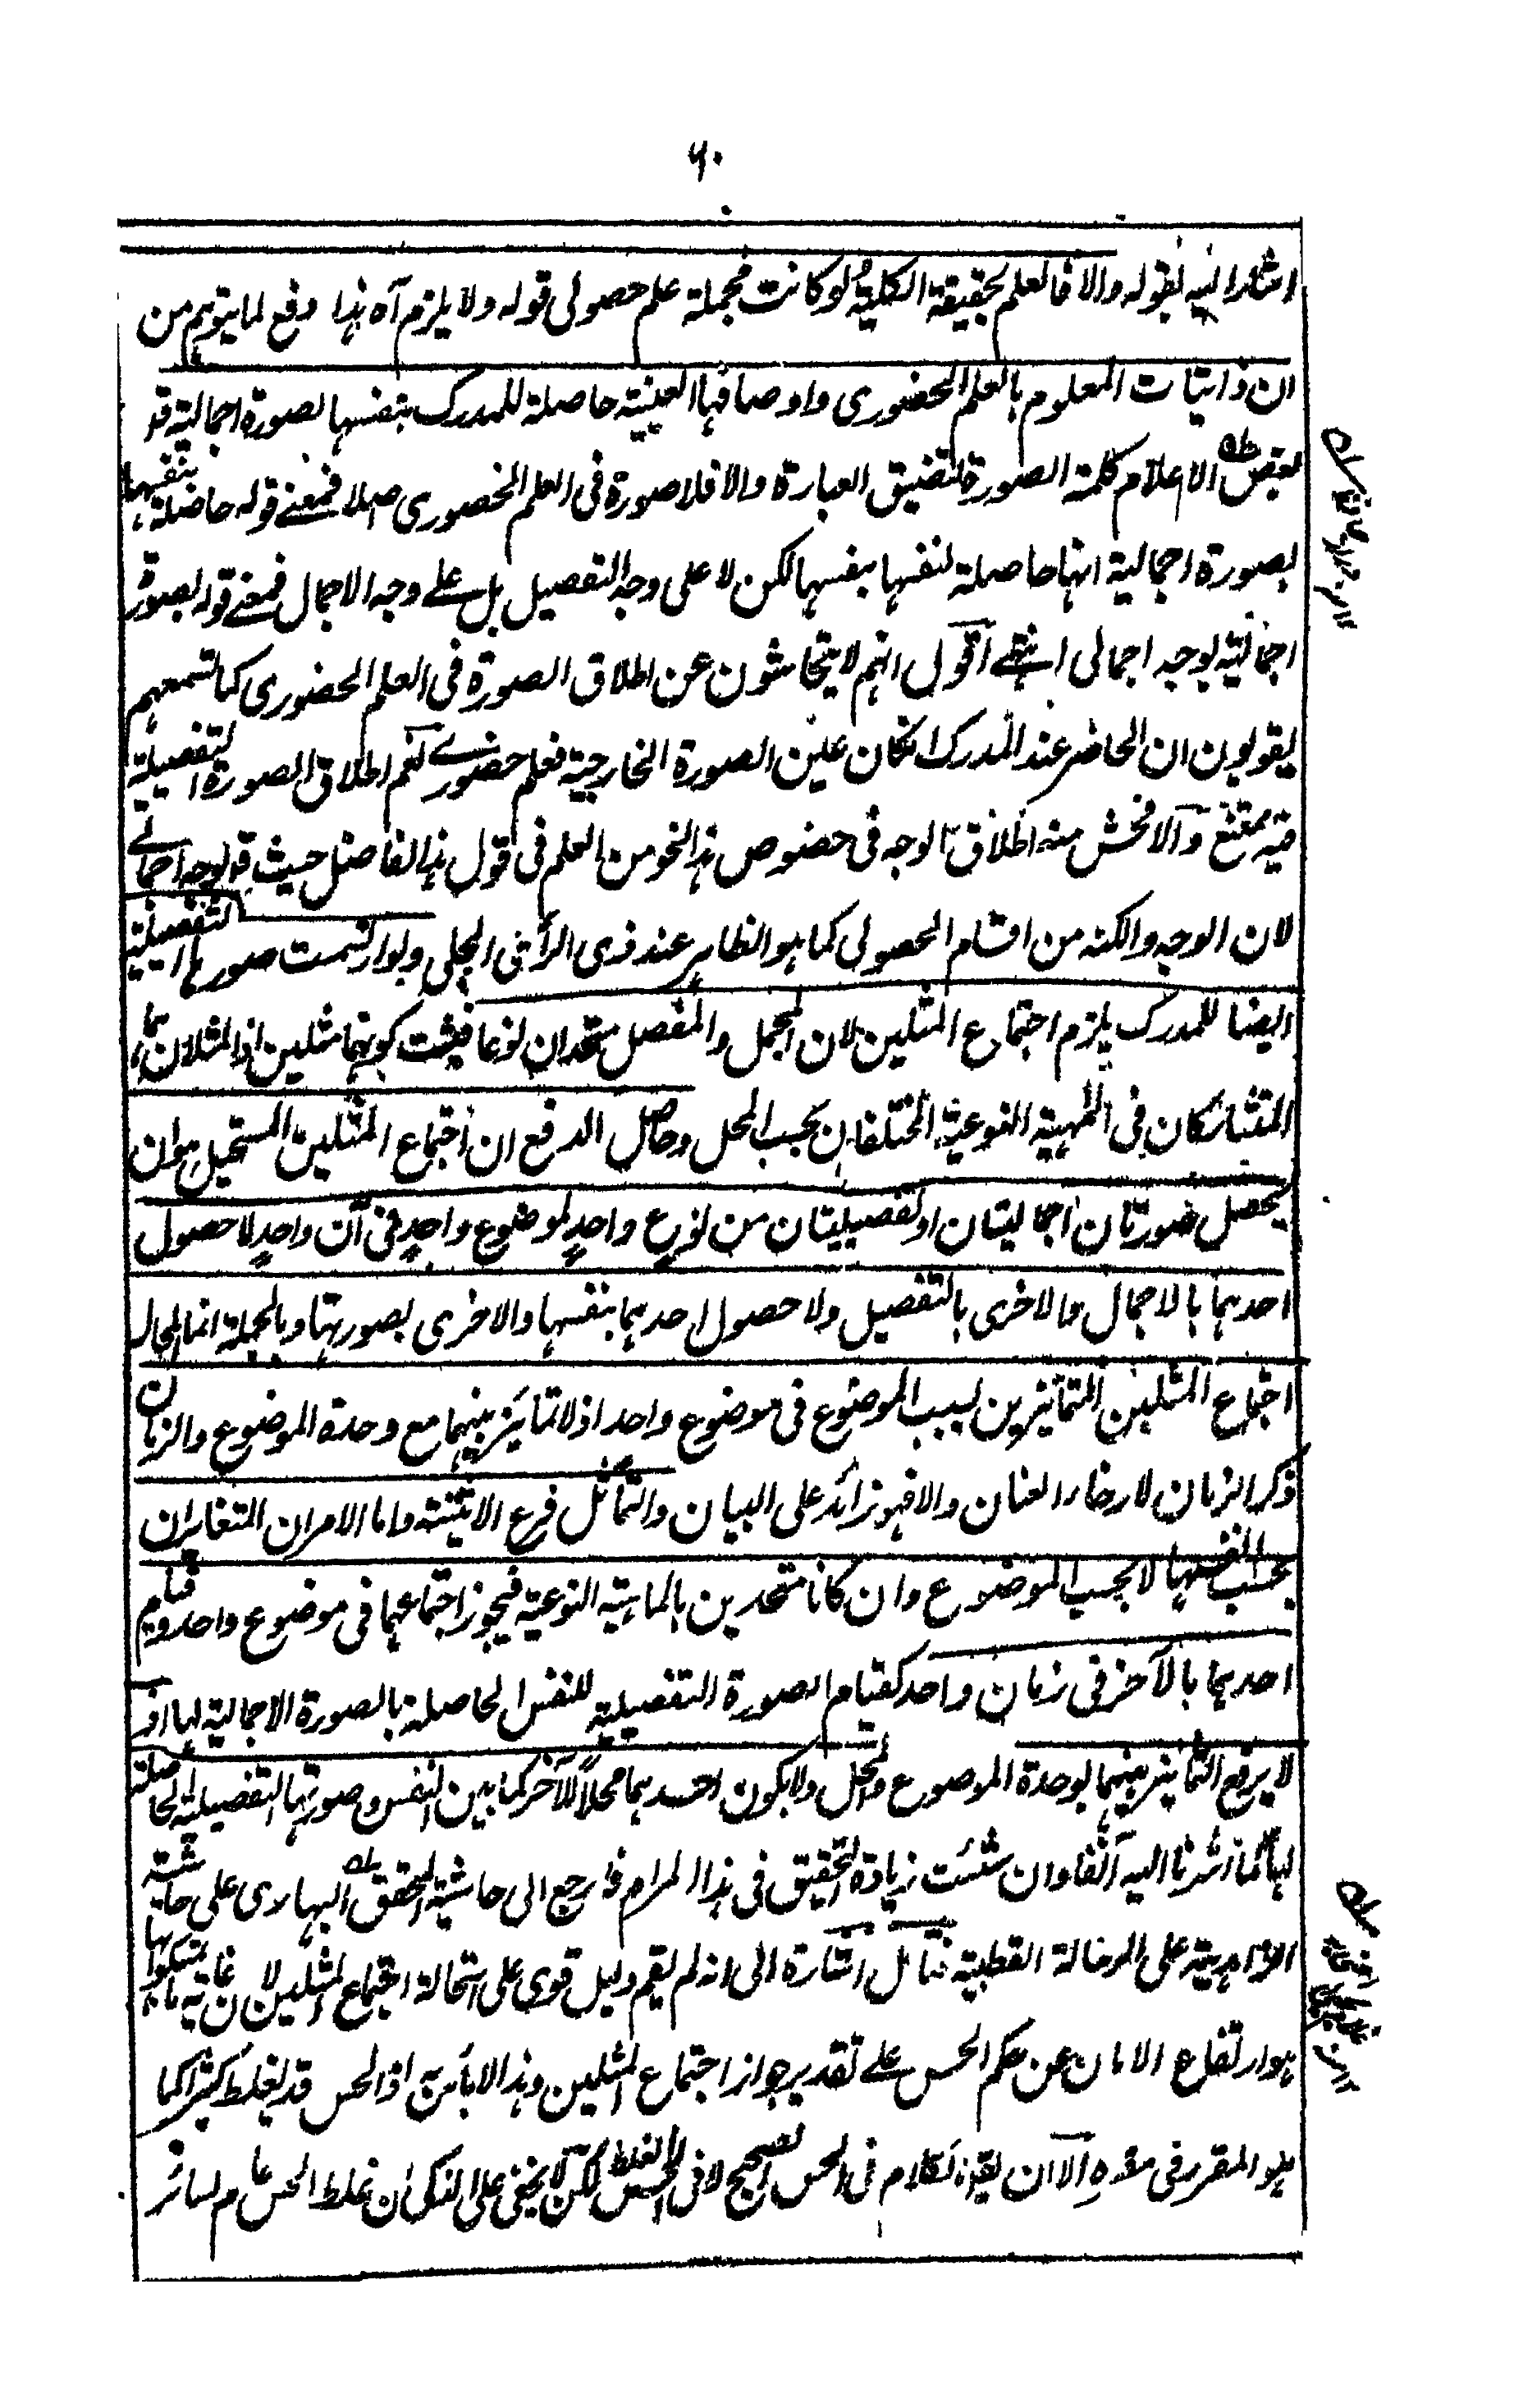 ٦٠
اشار اليه بقوله والا فالعلم بحقيقة الكلية لو كانت مجملة علم حصولى قوله ولا يلزم آه هذا دفع لما يتوهم من
ان ذاتيات المعلوم بالعلم الحضورى واوصافها العينية حاصلة للمدرك بنفسها بصورة اجمالية قد
بعض الاعلام كلمة الصورة لتضيق العبارة والا فلا صورة فى العلم الحضورى اصلا فمعنى قوله حاضلة بنفسها
بصورة اجمالية انها حاصلة لنفسها بنفسها لكن لا على وجه التفصيل بل على وجه الاجمال فمعنى قوله بصورة
اجمالية بوجه اجمالى انتهى اقول انهم لا يتحاشون عن اطلاق الصورة فى العلم الحضورى كما تسمعهم
يقولون ان الحاضر عند المدرك انكان عين الصورة الخارجية فعلم حضورى نعم اطلاق الصورة التفصيلية
فيه ممتنع والافحش منه اطلاق الوجه فى خصوص هذا النحو من العلم فى قول هذا الفاضل حيث قال بوجه اجمالى
لان الوجه والكنه من اقسام الحصولى كما هو الظاهر عند ذى الرأى الجلى ولو ارتسمت صورها التفصيلية
ايضا للمدرك يلزم اجتماع المثلين لان المجمل والمفصل متحدان نوعا فيثبت كونهما مثلين اذ المثلان هما
المتشاركان فى المهية النوعية المختلفان بحسب المحل وحاصل الدفع ان اجتماع المثلين المستحيل هو ان
يحصل صورتان اجماليتان او تفصيليتان من نوع واحدٍ لموضوع واحدٍ فى آن واحدٍ لا حصول
احدهما بالاجمال والاخرى بالتفصيل ولا حصول احدهما بنفسها والاخرى بصورتها وبالجملة انما المحال
اجتماع المثلين المتمائزين بسبب الموضوع فى موضوع واحد اذ لا تمايز بينهما مع وحدة الموضوع والزمان
ذكر الزمان لارخاء العنان والا فهو زائد على البيان والتماثل فرع الاثنينية واما الامران المتغايران
بحسب انفسهما لا بحسب الموضوع وان كانا متحدين بالماهية النوعية فيجوز اجتماعهما فى موضوع واحد وقيام
احدهما بالآخر فى زمان واحد كقيام الصورة التفصيلية للنفس الحاصلة بالصورة الاجمالية لها اذ
لا يرفع التمائز بينهما بوحدة الموضوع والمحل ولا بكون احدهما محلاً للآخر كما بين النفس وصورتها التفصيلية الحاصلة
لها كما اشرنا اليه آنفا وان شئت زيادة التحقيق فى هذا المرام فارجع الى حاشية المحقق البهارى على حاشية
الزاهدية على الرسالة القطبية فتأمل اشارة الى انه لم يقم دليل قوى على استحالة اجتماع المثلين لان غاية ما تمسكوا بها
هو ارتفاع الامان عن حكم الحس على تقدير جواز اجتماع المثلين وهذا لا بأس به اذ الحس قد يغلط كثيرا كما
هو المقرر فى مقره الا ان يقال الكلام فى الحس الصحيح لا فى الحس الغلط لكن لا يخفى على الذكى ان غلط الحس عام لسائر